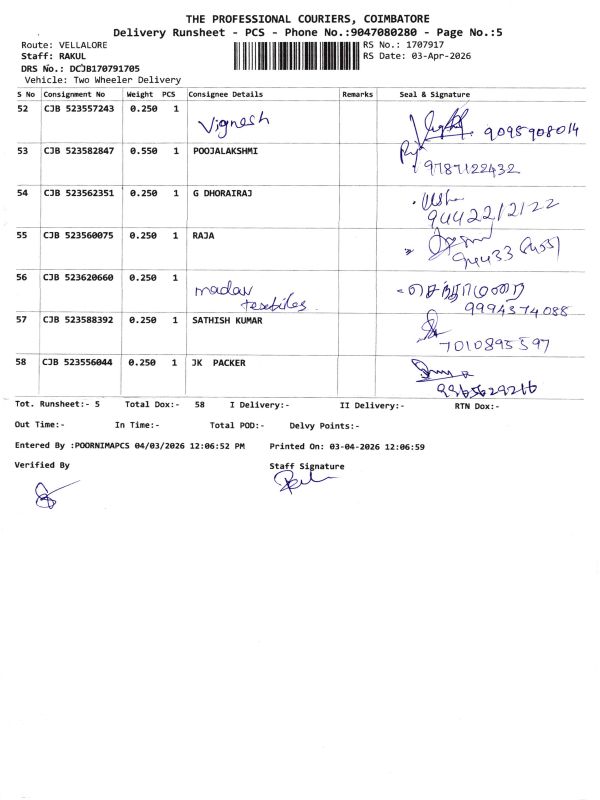 THE PROFESSIONAL COURIERS, COIMBATORE
Delivery Runsheet - PCS - Phone No.:9047080280 - Page No.:5
Route: VELLALORE RS No.: 1707917
Staff: RAKUL RS Date: 03-Apr-2026
DRS No.: DCJB170791705
Vehicle: Two Wheeler Delivery
S No Consignment No Weight PCS Consignee Details Remarks Seal & Signature
52 CJB 523557243 0.250 1 Vignesh 9095908014
53 CJB 523582847 0.550 1 POOJALAKSHMI
9787122432
54 CJB 523562351 0.250 1 G DHORAIRAJ
9442212122
55 CJB 523560075 0.250 1 RAJA
56 CJB 523620660 0.250 1 madav
9994374088
57 CJB 523588392 0.250 1 SATHISH KUMAR
7010895597
58 CJB 523556044 0.250 1 JK PACKER
Tot. Runsheet:- 5 Total Dox:- 58 I Delivery:- II Delivery:- RTN Dox:-
Out Time:- In Time:- Total POD:- Delvy Points:-
Entered By :POORNIMAPCS 04/03/2026 12:06:52 PM Printed On: 03-04-2026 12:06:59
Verified By Staff Signature